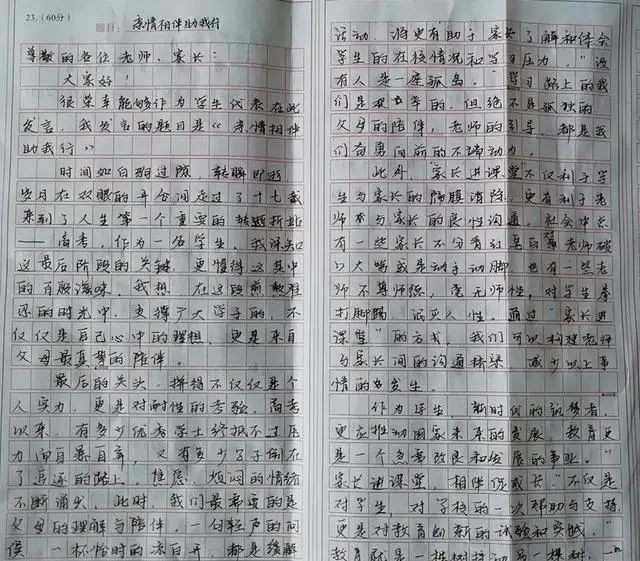 23.(60分)
题目：亲情相伴助我行
尊敬的各位老师、家长：
大家好！
很荣幸能够作为学生代表在此
发言，我发言的题目是《亲情相伴
助我行》
时间如白驹过隙，转瞬即逝，
岁月在双眼的开合间走过了十七载
来到了人生第一个重要的转折站
——高考，作为一名学生，我深知
这最后阶段的关键，更懂得这其中
的百般滋味。我想，在这段煎熬难
忍的时光中，支撑广大学子的，不
仅仅是自己心中的理想，更是来自
父母最真挚的陪伴。
最后的关头，拼得不仅仅是个
人实力，更是对耐性的考验。高考
以来，有多少优秀学士终抵不过压
力而自暴自弃，又有多少了子倒在
了追逐的路上，焦虑、烦闷的情绪
不断涌出，此时，我们最需要的是
父母的理解与陪伴，一句轻声的问
候，一杯恰时的凉白开，都是缓解
活动，将更有助于家长了解和体会
学生的在校情况和学习压力，“没
有人是一座孤岛。”学习路上的我
们是艰辛的，但绝不是孤独的
父母的陪伴，老师的引导，都是我
们奋勇向前的不竭动力。
此外，家长进课堂不仅利于学
生与家长的隔膜消除，更有利于老
师与家长的良性沟通。社会中总
有一些家长不分青红皂白对老师破
口大骂或是动手动脚，也有一些老
师不尊师德，毫无师性，对学生拳
打脚踢，泯灭人性。通过“家长进
课堂”的方式，我们可以构建老师
与家长间的沟通桥梁，减少以上事
情的发生。
作为学生，新时代的筑梦者，
更应推动国家未来的发展，教育更
是一个急需改良和发展的事业。“
家长进课堂，相伴促成长”不仅是
对学生，对学校的一次帮助与支持，
更是对教育创新的试验和实践。“
教育就是一棵树摇动另一棵树，一